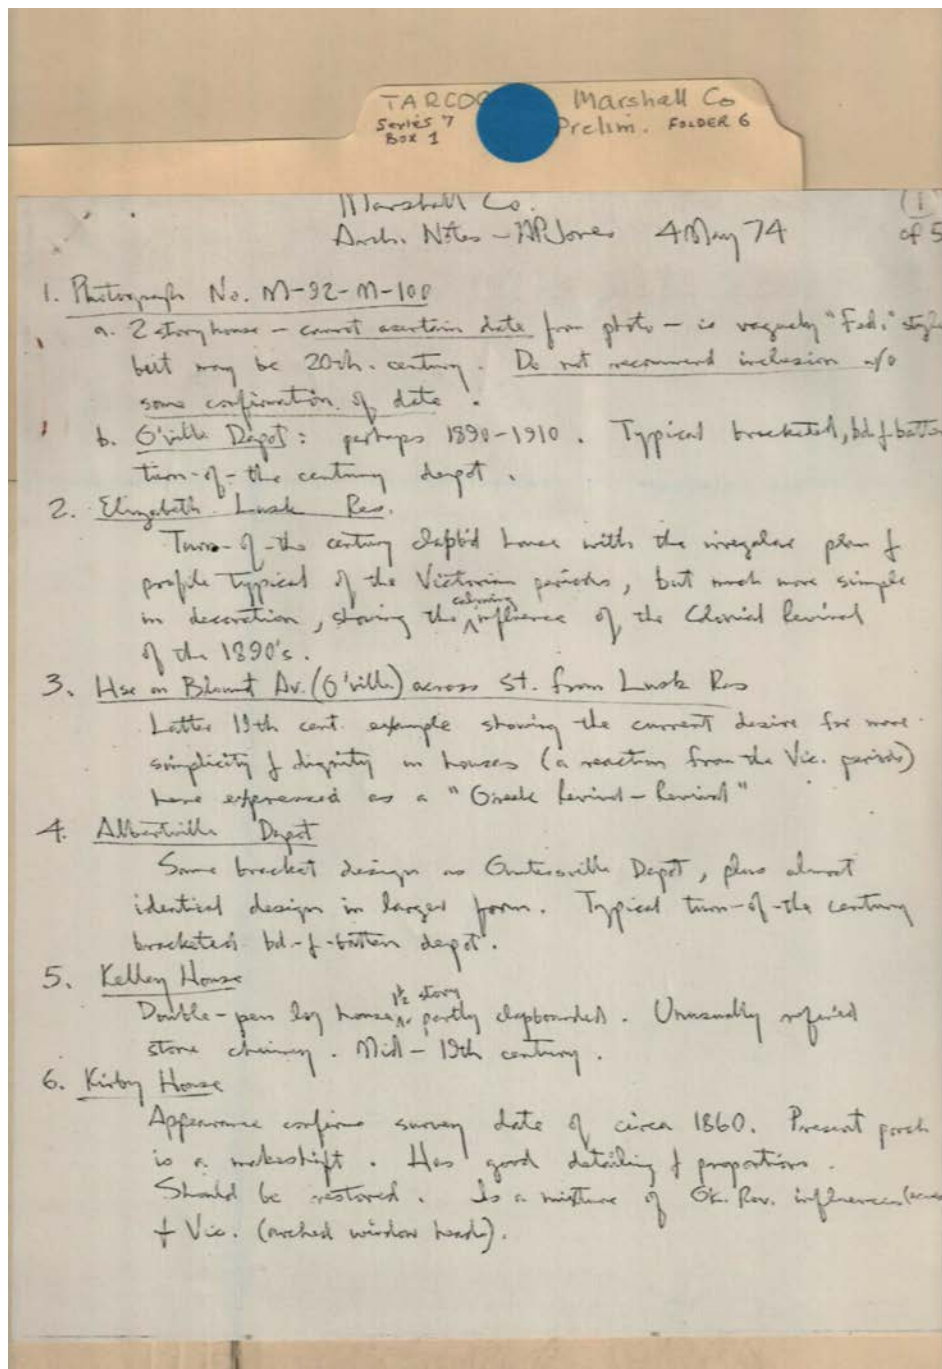 TARCOG
Marshall Co
Series 7
Prelim. FOLDER 6
Box 1
Marshall Co.
1
Arch. Notes - Jones 4 May 74
of 5
1. Photograph No. M-92-M-100
a. 2 story house - cannot ascertain date from photo - is vaguely "Fed." style
but may be 20th. century. Do not recommend inclusion w/o
some confirmation of date.
b. G'ville Depot: perhaps 1890-1910. Typical bracketed, bd-&-batten
turn-of-the century depot.
2. Elizabeth Lusk Res.
Turn-of-the century clapb'd house with the irregular plan &
profile typical of the Victorian periods, but much more simple
calming
in decoration, showing the influence of the Colonial Revival
of the 1890's.
3. Hse on Blount Av. (G'ville) across St. from Lusk Res
Latter 19th cent. example showing the current desire for more
simplicity & dignity in houses (a reaction from the Vic. periods)
here expressed as a "Greek Revival-Revival"
4. Albertville Depot
Same bracket design as Guntersville Depot, plus almost
identical design in larger form. Typical turn-of-the century
bracketed bd-&-batten depot.
5. Kelley House
1½ story
Double-pen log house, partly clapboarded. Unusually refined
stone chimney. Mid-19th century.
6. Kirby House
Appearance confirms survey date of circa 1860. Present porch
is a makeshift. Has good detailing & proportions.
Should be restored. Is a mixture of Gk. Rev. influences
+ Vic. (arched window heads).